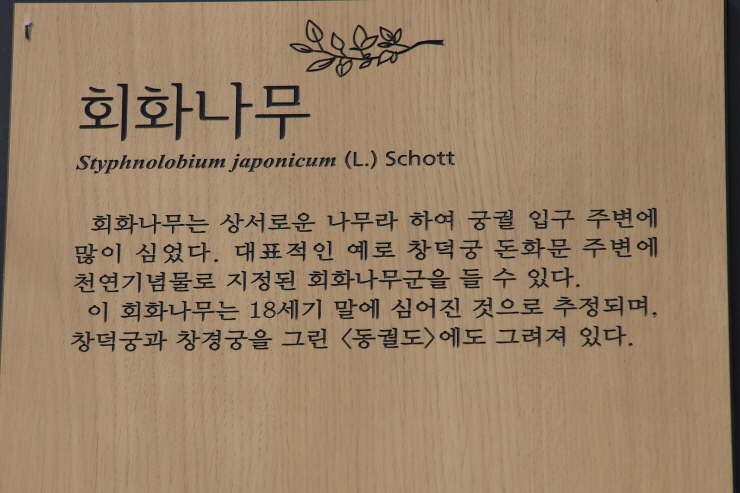 회화나무
Styphnolobium japonicum (L.) Schott
회화나무는 상서로운 나무라 하여 궁궐 입구 주변에
많이 심었다. 대표적인 예로 창덕궁 돈화문 주변에
천연기념물로 지정된 회화나무군을 들 수 있다.
이 회화나무는 18세기 말에 심어진 것으로 추정되며,
창덕궁과 창경궁을 그린 〈동궐도〉에도 그려져 있다.